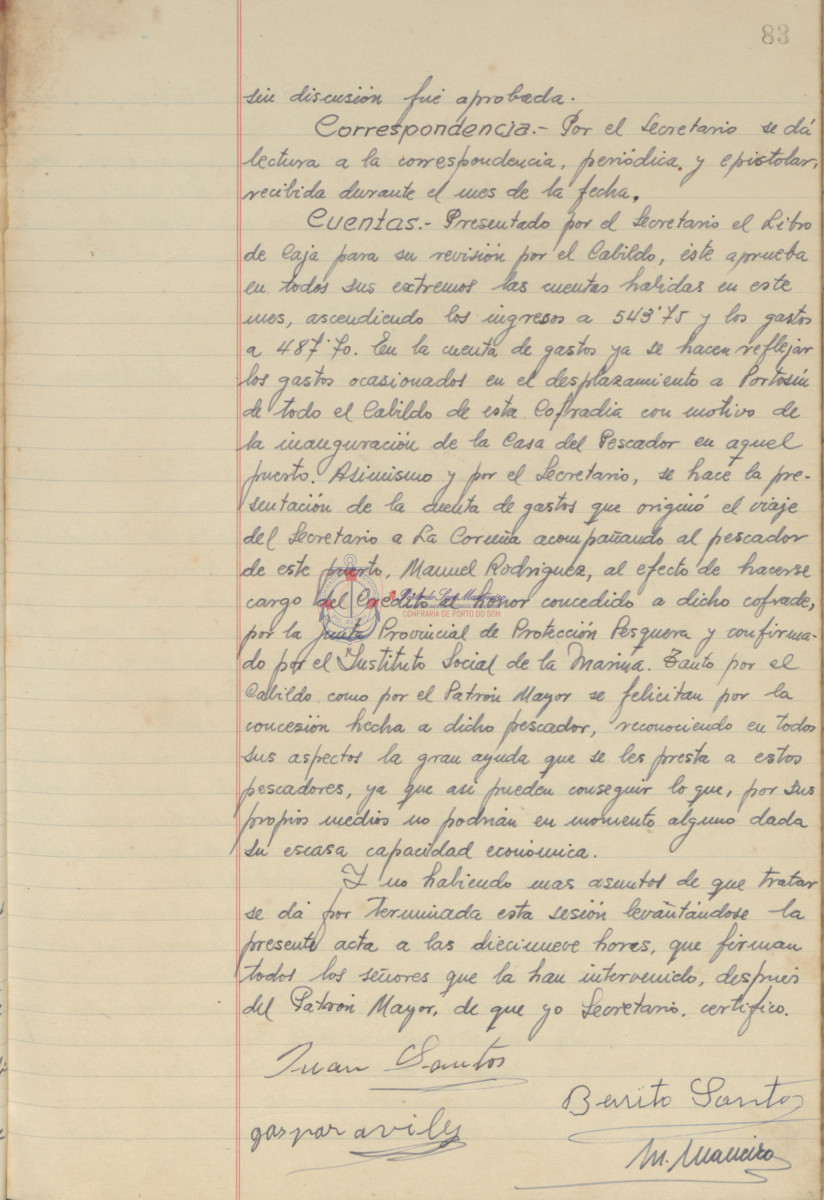 83
sin discusión fué aprobada.
Correspondencia.- Por el Secretario se dá
lectura a la correspondencia, periódica, y epistolar,
recibida durante el mes de la fecha.
Cuentas.- Presentado por el Secretario el Libro
de Caja para su revisión por el Cabildo, éste aprueba
en todos sus extremos las cuentas habidas en este
mes, ascendiendo los ingresos a 543'75 y los gastos
a 487'70. En la cuenta de gastos ya se hacen reflejar
los gastos ocasionados en el desplazamiento a Portosín
de todo el Cabildo de esta Cofradia con motivo de
la inauguración de la Casa del Pescador en aquel
puerto. Asimismo y por el Secretario, se hace la pre-
sentación de la cuenta de gastos que originó el viaje
del Secretario a La Coruña acompañando al pescador
de este puerto, Manuel Rodriguez, al efecto de hacerse
cargo del Crédito al honor concedido a dicho cofrade,
CONFRARIA DE PORTO DO SON
por la Junta Provincial de Protección Pesquera y confirma-
do por el Instituto Social de la Marina. Tanto por el
Cabildo como por el Patrón Mayor se felicitan por la
concesión hecha a dicho pescador, reconociendo en todos
sus aspectos la gran ayuda que se les presta a estos
pescadores, ya que asi pueden conseguir lo que, por sus
propios medios no podrián en momento alguno dada
su escasa capacidad económica.
Y no habiendo mas asuntos de que tratar
se dá por terminada esta sesión levantándose la
presente acta a las diecinueve horas, que firman
todos los señores que la han intervenido, después
del Patrón Mayor, de que yo Secretario, certifico.
Juan Santos
Benito Santos
gaspar aviles
M. Maneiro